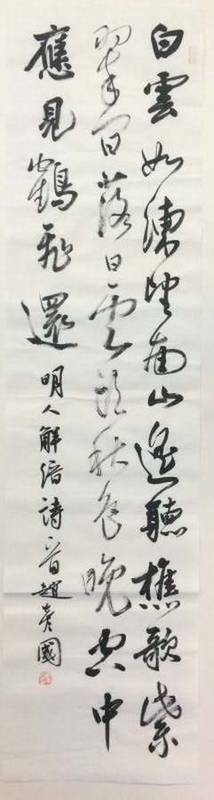 白雲如練望南山遙聽樵歌紫
翠間落日雲秋色晚空中
應見鶴飛還 明人解縉詩一首趙彥國